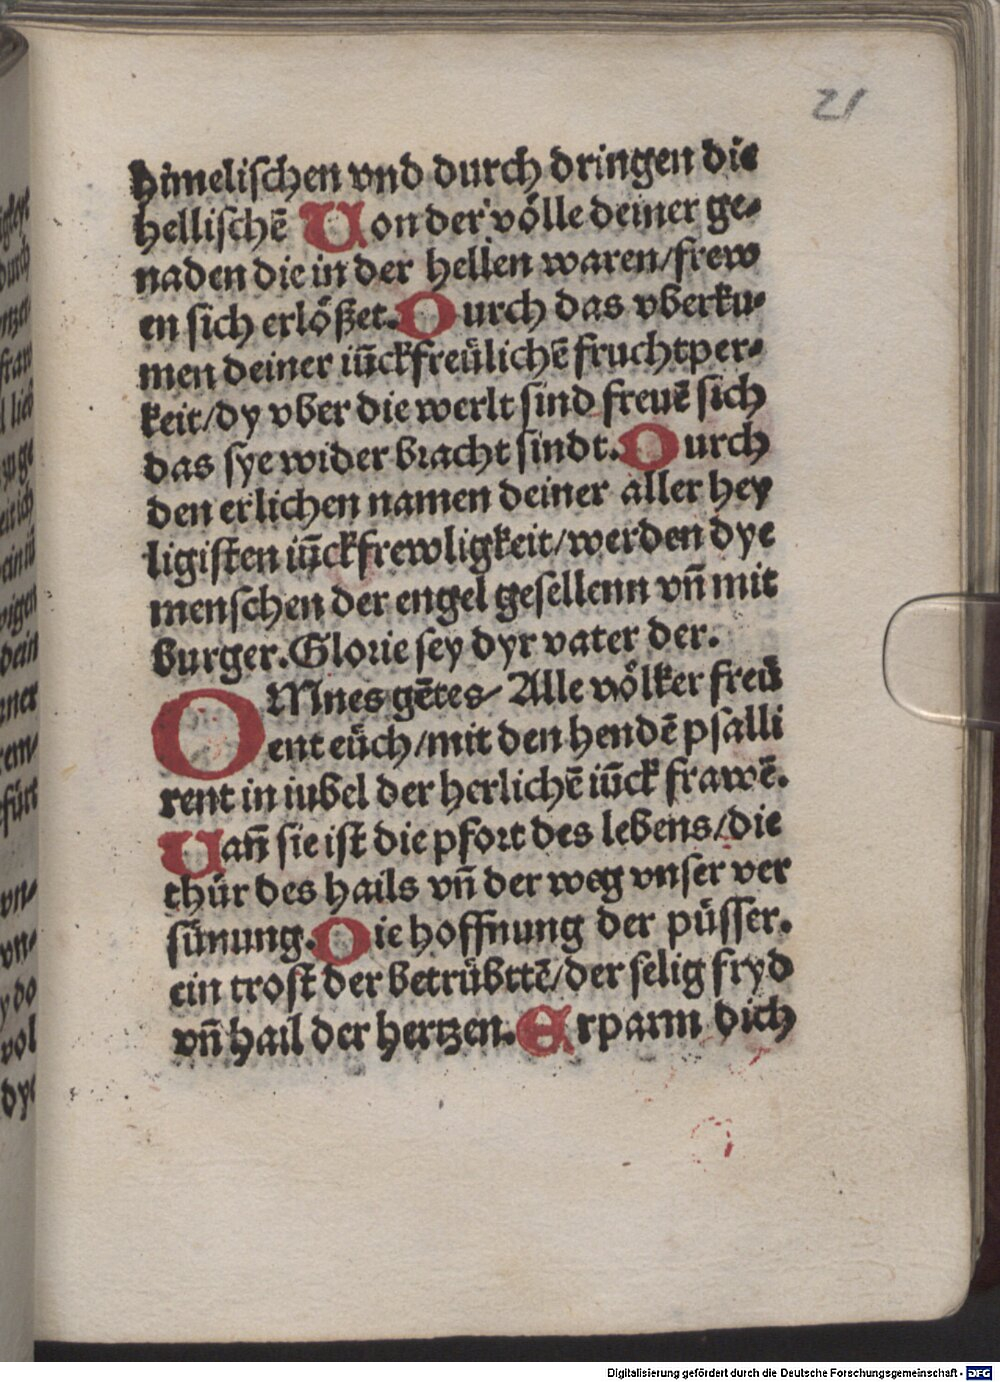 21
himelischen vnd durch dringen die
hellischē Von der völle deiner ge-
naden die in der hellen waren/frew
en sich erlößet. Durch das vberku-
men deiner iūckfreülichē fruchtper-
keit/dy vber die werlt sind freuē sich
das sye wider bracht sindt. Durch
den erlichen namen deiner aller hey
ligisten iūckfrewligkeit/werden dye
menschen der engel gesellenn vn̄ mit
burger. Glorie sey dyr vater der.
OMnes gētes/ Alle völker freü
ent eüch/mit den hendē psalli
rent in iubel der herlichē iūck frawē.
Van̄ sie ist die pfort des lebens/die
thür des hails vn̄ der weg vnser ver
sünung. Die hoffnung der püsser.
ein trost der betrübttē/der selig fryd
vn̄ hail der hertzen. Erparm dich
Digitalisierung gefördert durch die Deutsche Forschungsgemeinschaft - DFG